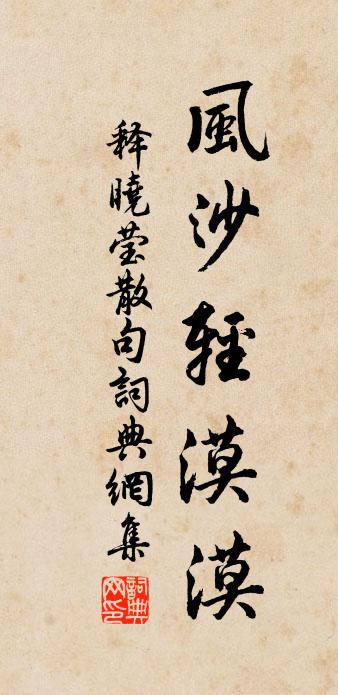 風沙輕漠漠
释曉莹散句詞典網集
詞典網印